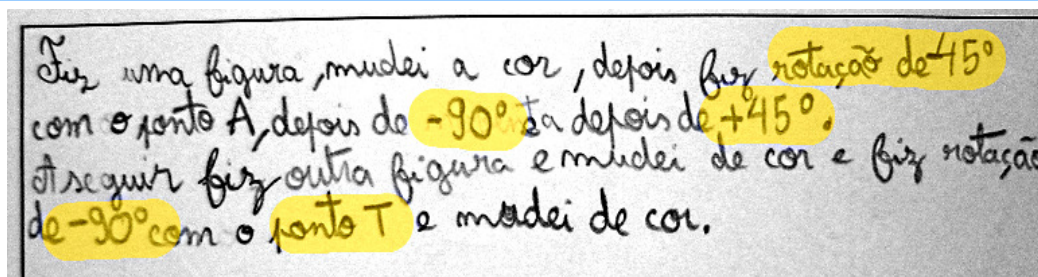 Fiz uma figura, mudei a cor, depois fiz rotação de -45°
com o ponto A, depois de -90° e a depois de +45°.
A seguir fiz outra figura e mudei de cor e fiz rotação
de -90° com o ponto T e mudei de cor.